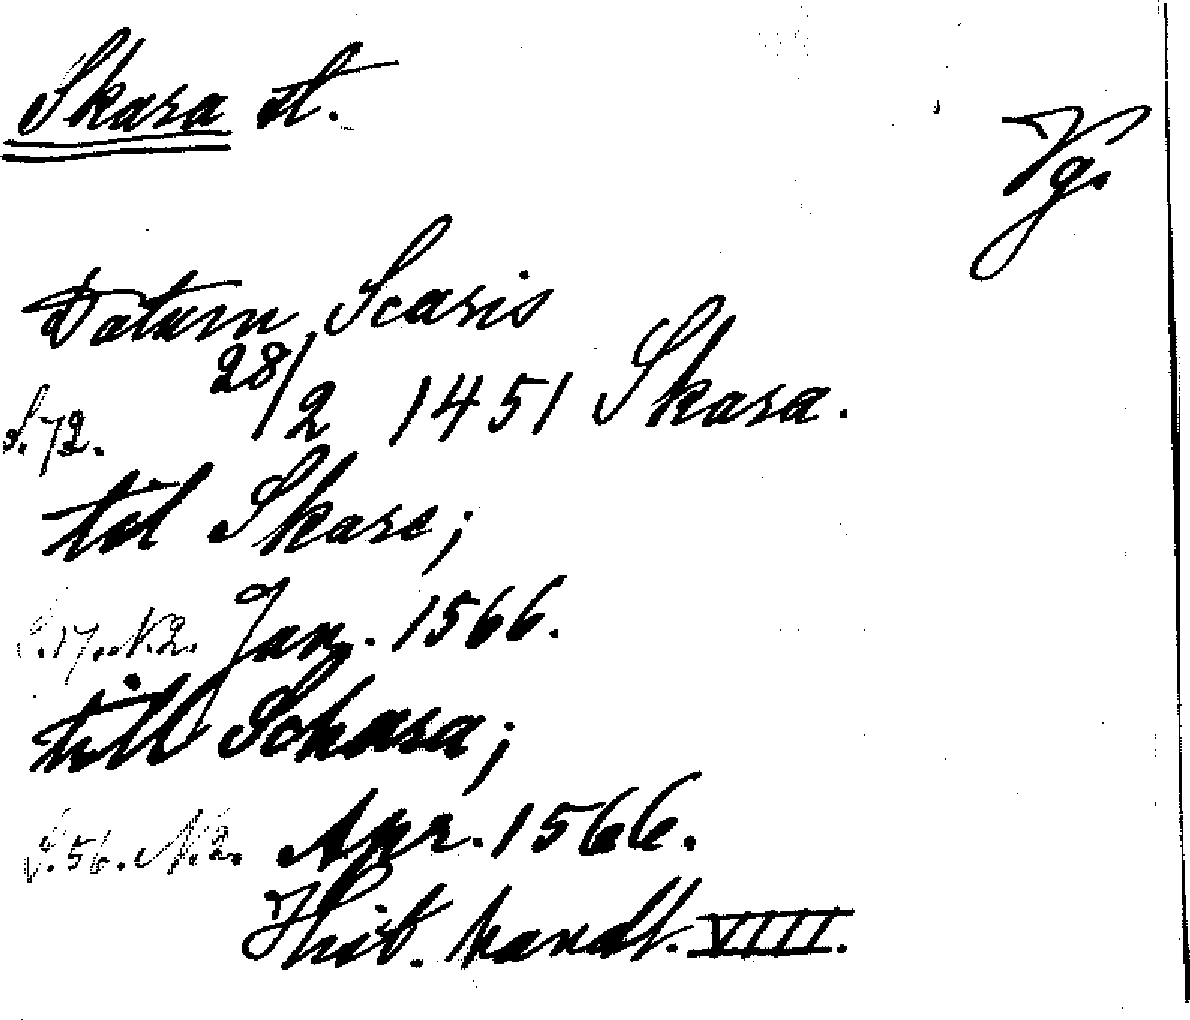 Skara st.
Vg.
Datum Scaris
S. 72. 28/2 1451 Skara.
til Skare;
S. 17. N. 2. Jan. 1566.
till Schara;
S. 56. N. 2. Apr. 1566.
Hist. handl. VIII.